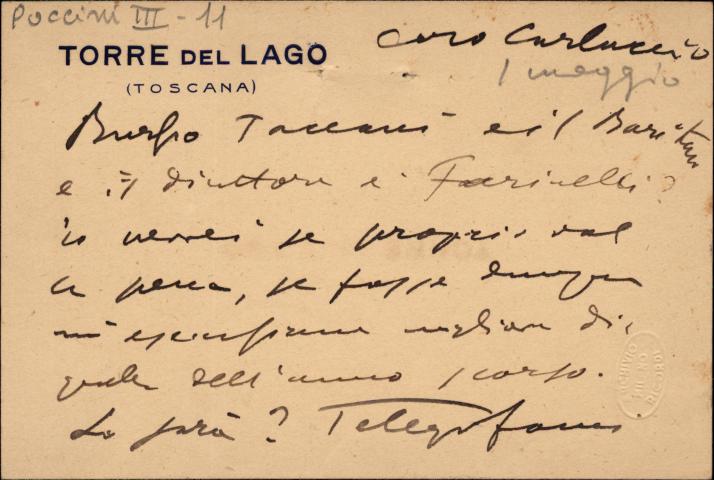 Puccini III - 11
TORRE DEL LAGO
(TOSCANA)
caro Carluccio
1 maggio
Burgio Taccani e il Baritono
e il direttore è Farinelli?
io verrei se proprio val
la pena, se fosse dunque
un' esecuzione migliore di
quella dell'anno scorso.
Lo sarà? Telegrafami
ARCHIVIO
RICORDI